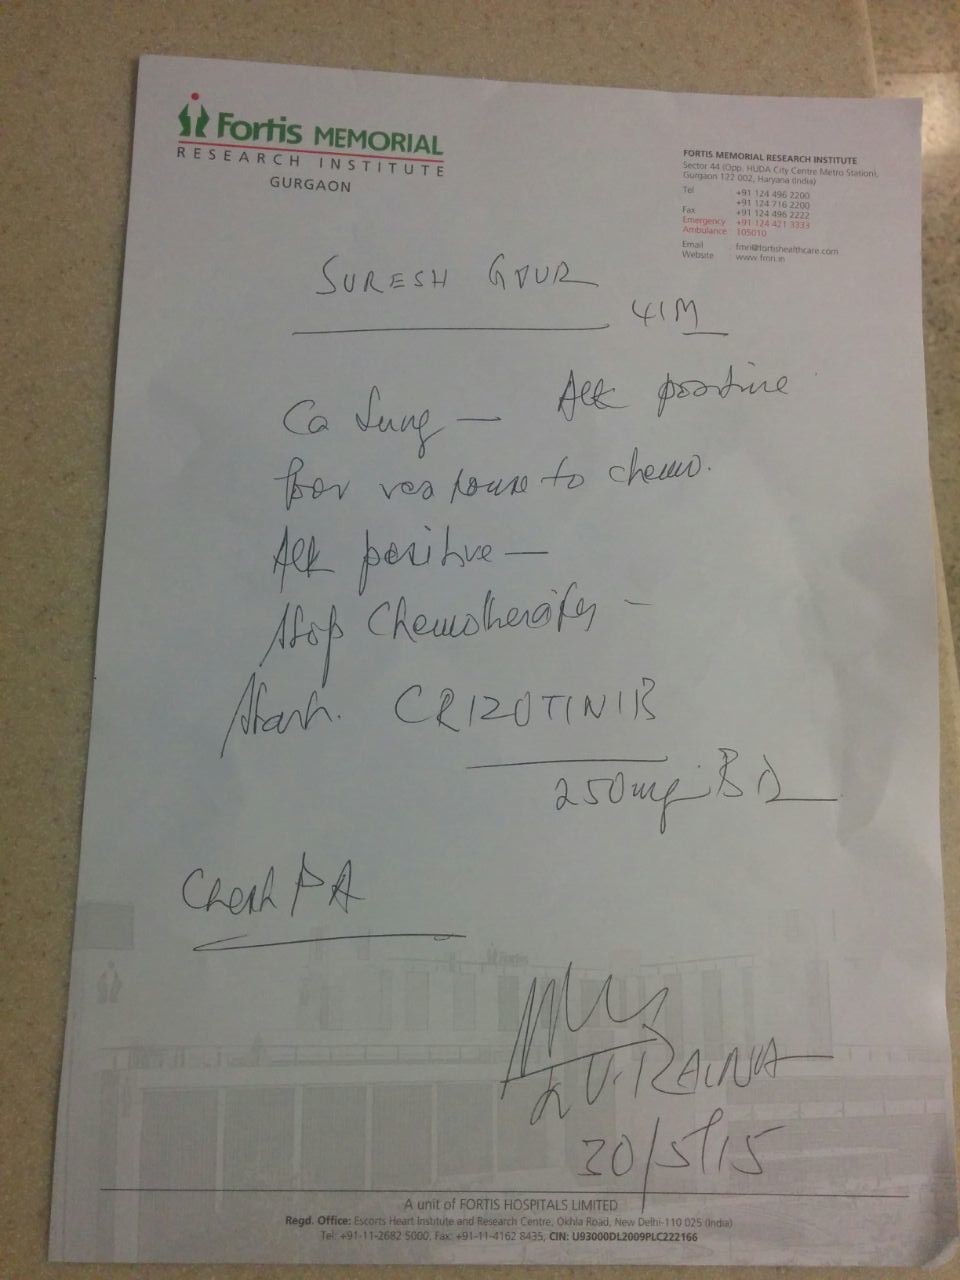 Fortis MEMORIAL
RESEARCH INSTITUTE
GURGAON
FORTIS MEMORIAL RESEARCH INSTITUTE
Sector 44 (Opp. HUDA City Centre Metro Station),
Gurgaon 122 002, Haryana (India)
Tel +91 124 496 2200
+91 124 716 2200
Fax +91 124 496 2222
Emergency +91 124 421 3333
Ambulance 105010
Email : fmri@fortishealthcare.com
Website : www.fmri.in
SURESH GOUR
41M
Ca Lung — Alk positive
Poor response to chemo.
Alk positive —
Stop Chemotherapy —
Start. CRIZOTINIB
250mg BD
Chest PA
V. RAINA
30/5/15
A unit of FORTIS HOSPITALS LIMITED
Regd. Office: Escorts Heart Institute and Research Centre, Okhla Road, New Delhi-110 025 (India)
Tel: +91-11-2682 5000, Fax: +91-11-4162 8435, CIN: U93000DL2009PLC222166